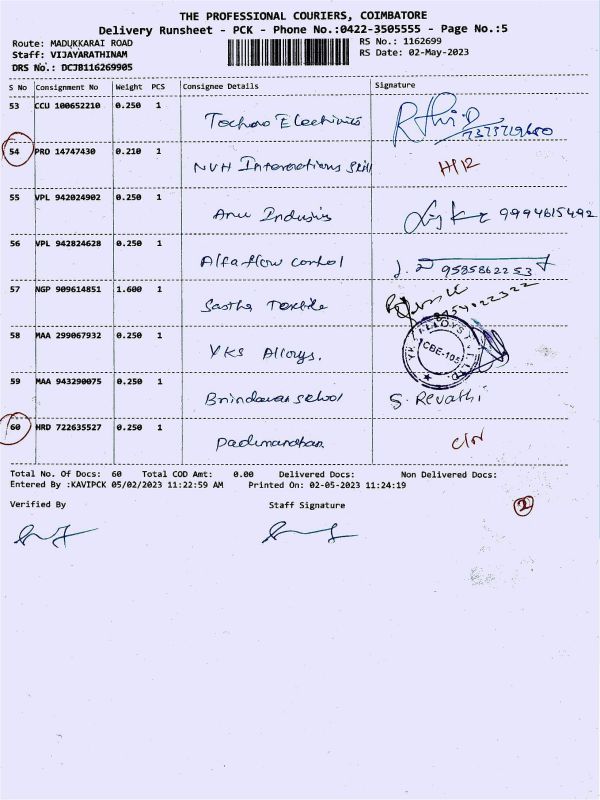 THE PROFESSIONAL COURIERS, COIMBATORE
Delivery Runsheet - PCK - Phone No.:0422-3505555 - Page No.:5
Route: MADUKKARAI ROAD RS No.: 1162699
Staff: VIJAYARATHINAM RS Date: 02-May-2023
DRS No.: DCJB116269905
S No Consignment No Weight PCS Consignee Details Signature
53 CCU 100652210 0.250 1
54 PRO 14747430 0.210 1 NVH
55 VPL 942024902 0.250 1 Anu 9994615492
56 VPL 942824628 0.250 1 Alfa flow control 9585862253
57 NGP 909614851 1.600 1 Sastha Textile
58 MAA 299067932 0.250 1 YKS Alloys. CBE-105
59 MAA 943290075 0.250 1 Brindavan school S. Revathi
60 HRD 722635527 0.250 1
Total No. Of Docs: 60 Total COD Amt: 0.00 Delivered Docs: Non Delivered Docs:
Entered By :KAVIPCK 05/02/2023 11:22:59 AM Printed On: 02-05-2023 11:24:19
Verified By Staff Signature
2